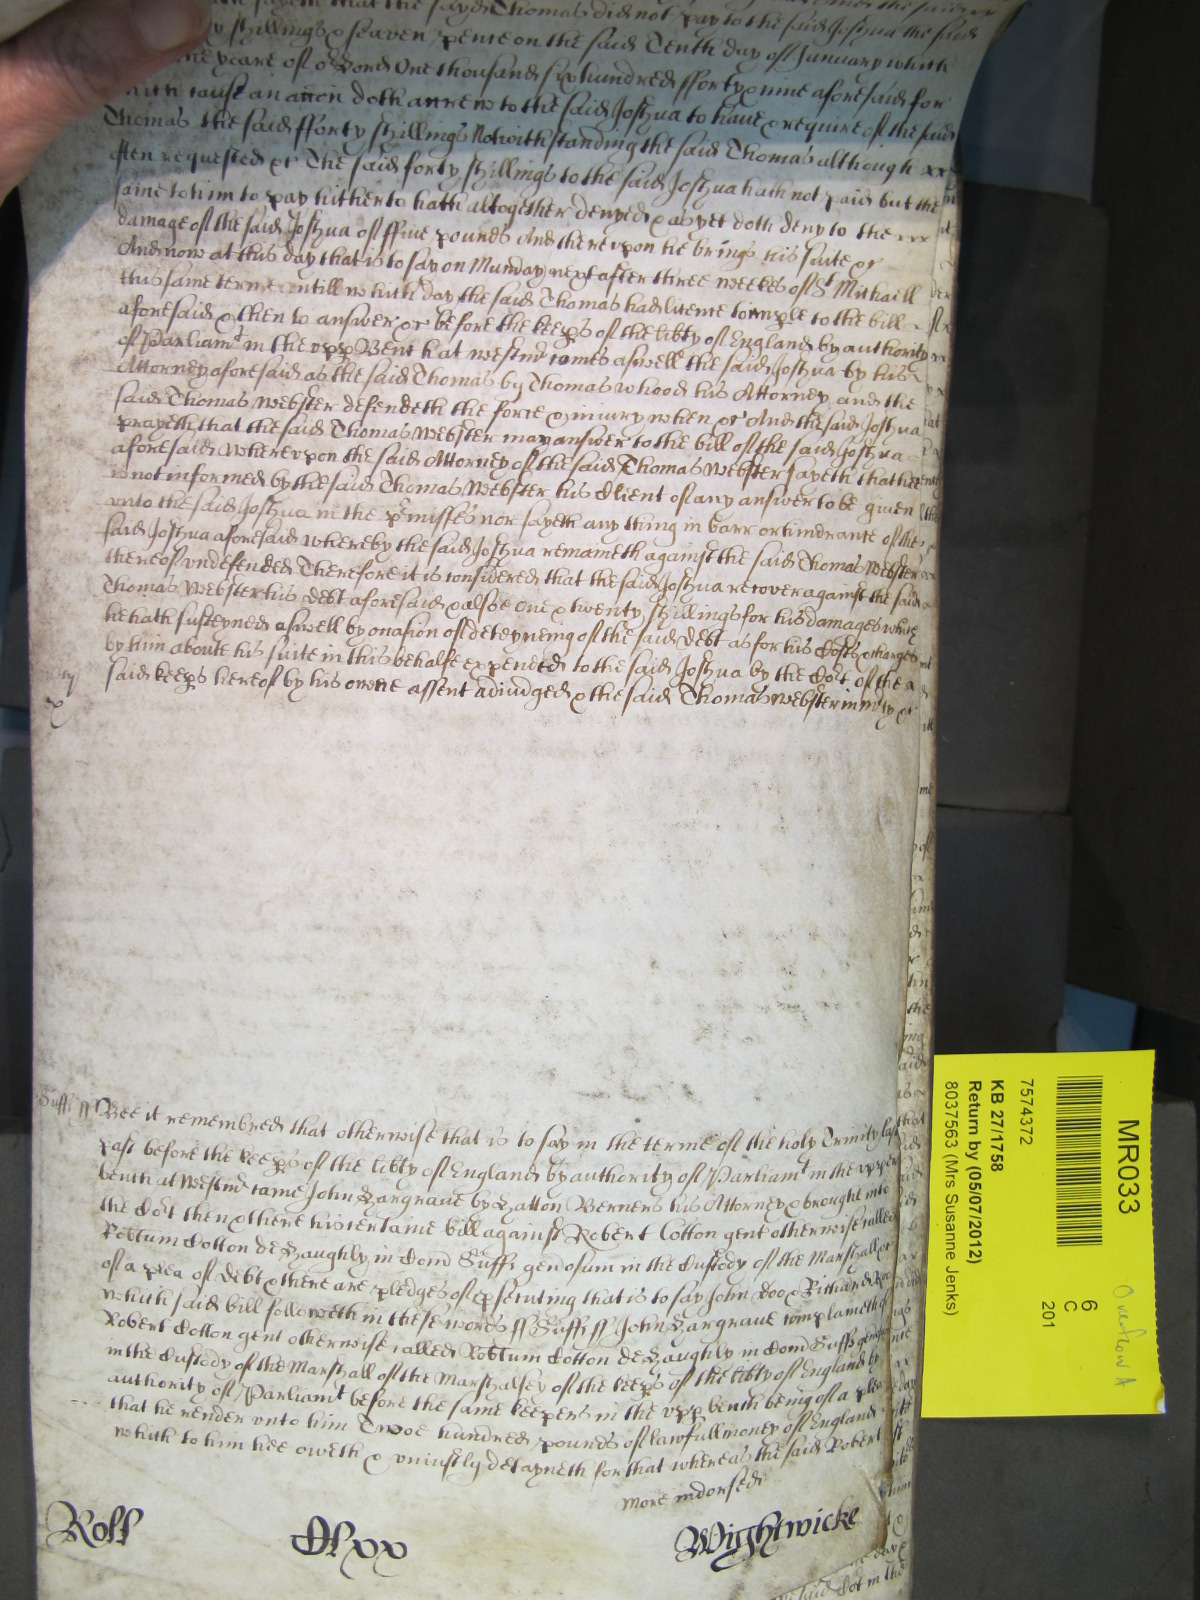 sayeth that the sayd Thomas did not pay to the said Joshua the said
shillings & seaven pence on the said Tenth day of January which
yeare of o Lord One thousand six hundred fforty & nine aforesaid for
which cause an accon doth accrew to the said Joshua to have & require of the said
Thomas the said fforty shillings Notwithstanding the said Thomas although
often requested &c The said forty shillings to the said Joshua hath not paid but the
same to him to pay hitherto hath altogether denyed & as yet doth deny to the
damage of the said Joshua of ffive pounds And thereupon he brings his suite &c
And now at this day that is to say on Munday next after three weekes of St Michaell
this same terme untill which day the said Thomas had licence to imple to the bill
aforesaid & then to answer &c before the keeps of the libty of England by authority
of Parliamt in the upp Bench at Westmr comes aswell the said Joshua by his
Attorney aforesaid as the said Thomas by Thomas Whood his Attorney and the
said Thomas Webster defendeth the force & iniury when &c And the said Joshua
prayeth that the said Thomas Webster may answer to the bill of the said Joshua
aforesaid Whereupon the said Attorney of the said Thomas Webster sayeth that hee
is not informed by the said Thomas Webster his Client of any answer to be given
unto the said Joshua in the pmisses nor sayeth any thing in barr or hindrance of the
said Joshua aforesaid whereby the said Joshua remaineth against the said Thomas Webster
thereof undefended Therefore it is considered that the said Joshua recover against the said
Thomas Webster his Debt aforesaid & alsoe one & twenty shillings for his damages which
he hath susteyned aswell by occasion of deteyneing of the said Debt as for his Costs & charges
by him aboute his suite in this behalfe expended to the said Joshua by the Cort of the
said keeps hereof by his owne assent adiudged & the said Thomas Webster in mcy &c
Suff ss Bee it remembred that otherwise that is to say in the terme of the holy Trinity last
past before the keeps of the libty of England by authority of Parliamt in the upper
bench at Westmr came John Hargrave by Hatton Berners his Attorney & brought into
the Cort then & there his certaine bill against Robert Cotton gent otherwise called
Robtum Cotton de Haughly in Com Suff genosum in the Custody of the Marshall &c
of a plea of Debt & there are pledges of psecuting that is to say John Doo & Richard Roo
which said bill followeth in these words ss Suff ss John Hargrave complaineth of
Robert Cotton gent otherwise called Robtum Cotton de Haughly in Com Suff genosum
in the Custody of the Marshall of the Marshalsey of the keeps of the libty of England by
authority of Parliamt before the same keepers in the upp bench being of a plea
that he render unto him Twoe hundred pounds of lawfull money of England
which to him hee oweth & uniustly detayneth for that whereas the said Robert
more indorsed
Roll Clxx Wightwicke
MR033
7574372
KB 27/1758
Return by (05/07/2012)
8037563 (Mrs Susanne Jenks)
6
C
201
Overflow A